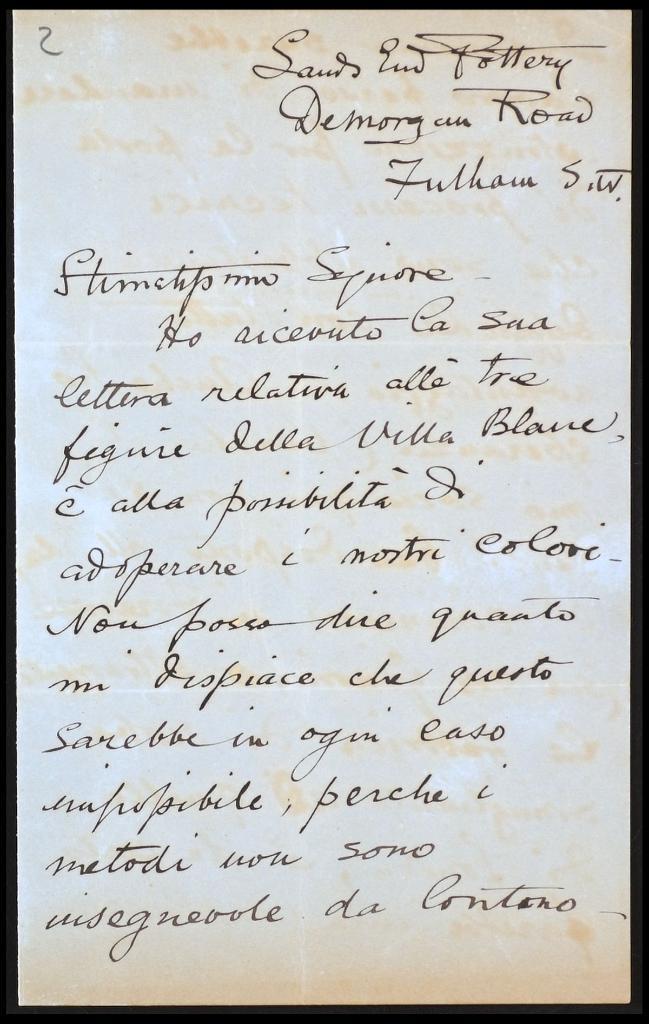 2
Sands End Pottery
DeMorgan Road
Fulham S.W.
Stimatissimo Signore -
Ho ricevuto la sua
lettera relativa alle tre
figure della Villa Blanc,
è alla possibilità di
adoperare i nostri colori -
Non posso dire quanto
mi dispiace che questo
sarebbe in ogni caso
impossibile, perche i
metodi non sono
insegnevole da lontano -